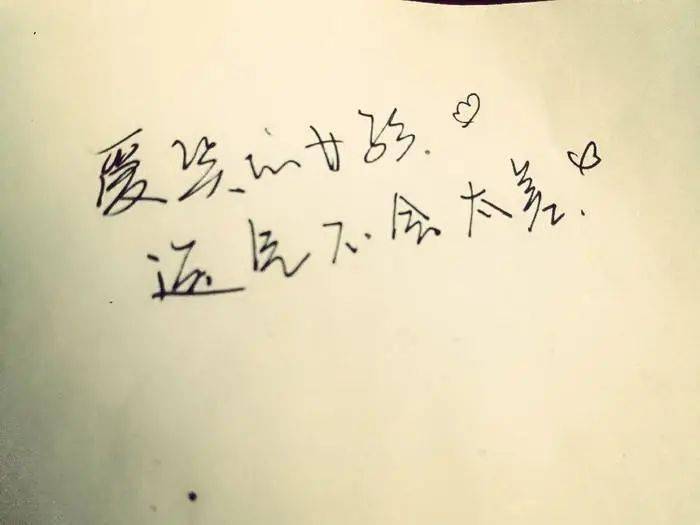 爱笑的女孩.
运气不会太差.